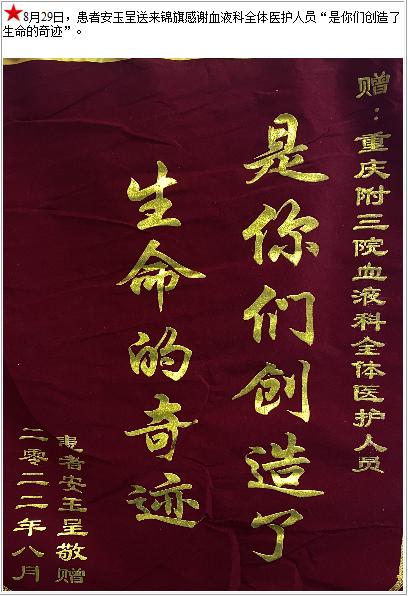 ★8月29日，患者安玉呈送来锦旗感谢血液科全体医护人员“是你们创造了
生命的奇迹”。
赠：重庆附三院血液科全体医护人员
是你们创造了
生命的奇迹
患者安玉呈敬赠
二零二二年八月